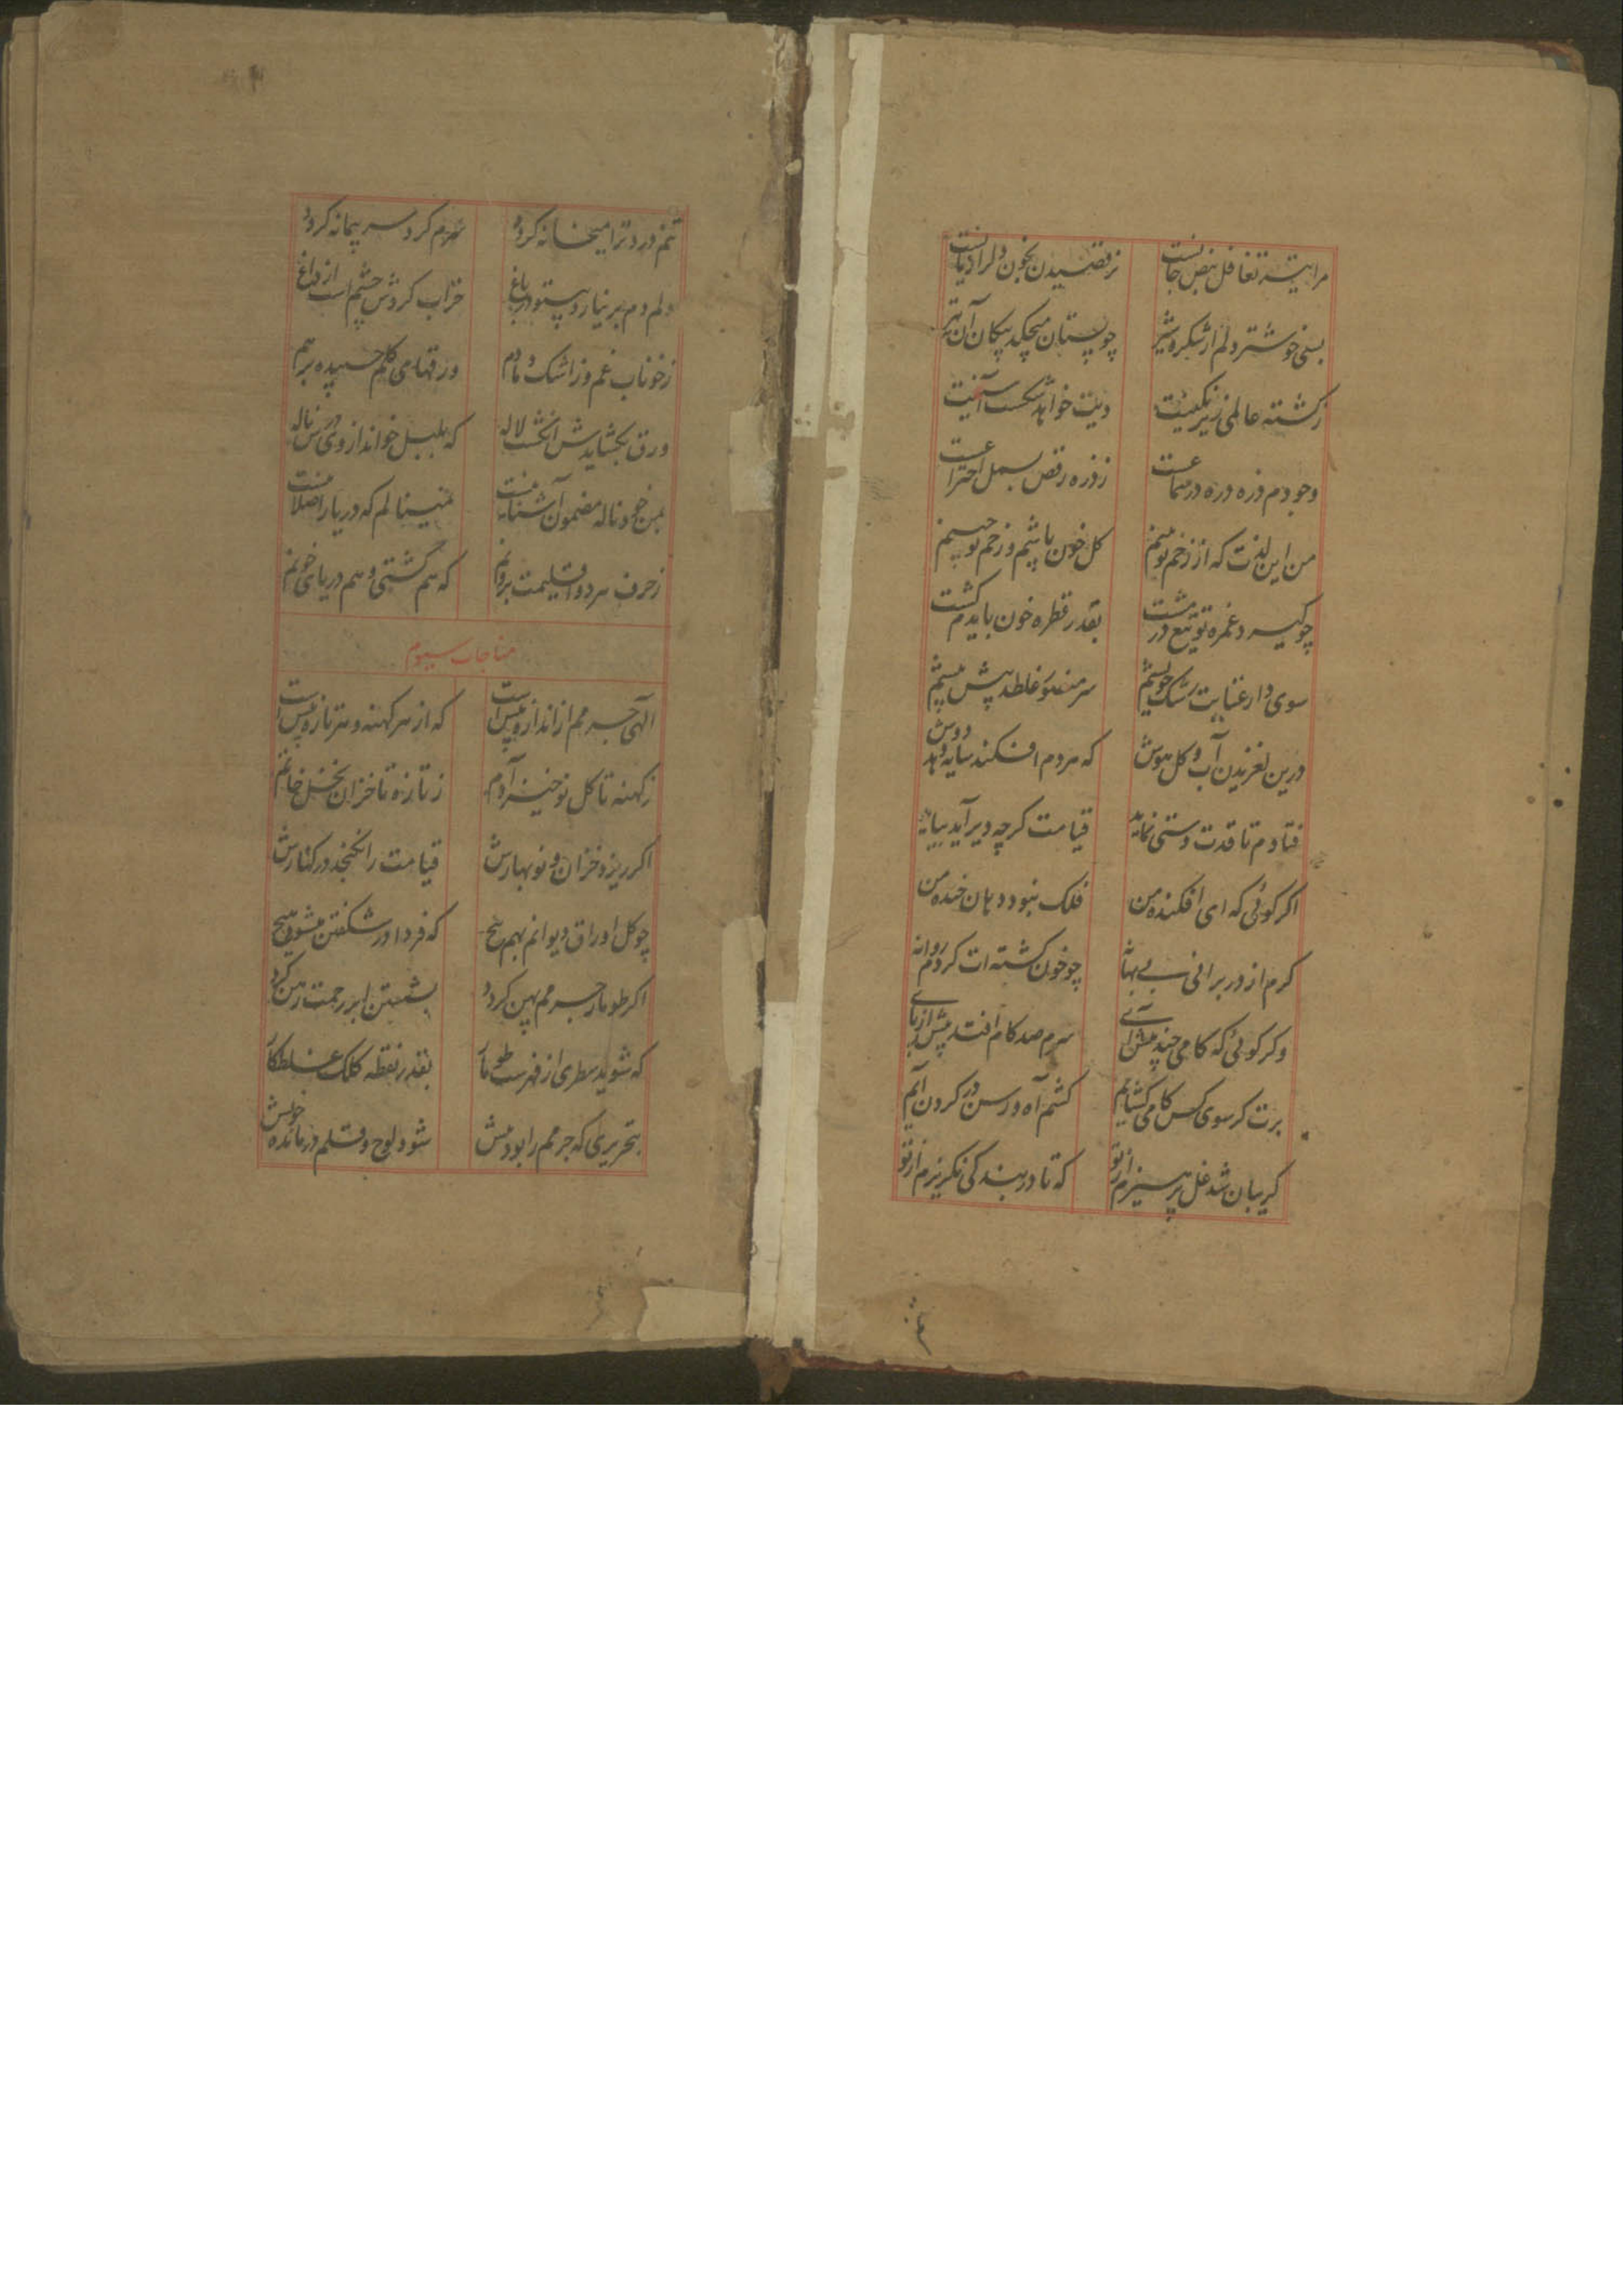 مرا تیر تغافل نبض جانست ز رقصیدن بخون دلرا دیانست
بسی خوشتر دلم از شکر و شیر چو پستان میچکد پیکان آن تیر
ز کشته عالمی
وجودم ذره ذره در سماعست ز ذره رقص بسمل اختراعست
من این لذت که از زخم تو بینم کل خون پاشم و زخم تو چینم
چو کیرد غمزه تو تیغ در مشت بقدر قطره خون بایدم کشت
سوی دار عنایت
درین لغزیدن آب و کل هوش که هر دم افکند سایه دهد دوش
فتادم تا قدت دستی نماید قیامت کرچه دیر آید بیاید
اکر کوئی که ای افکنده من فلک نبود دهان خنده من
کرم از در برانی بی بهانه چو خون کشته ات کردم روانه
وکر کوئی که کامی چند پیش آی سرم صد کام افتد پیش از پای
برت کر سوی کس کامی کشایم کشم آه و رسن در کردن آیم
کریبان شد غل پرهیزم از تو که تا در بندکی نکریزم از تو
تنم درد ترا میخانه کردد سرم کرد سر پیمانه کردد
دلم دم بر نیارد خراب کردش چشم است از داغ
ز خوناب غم وز اشک دمادم ورقهای کلم چسپیده بر هم
ورق بکشایدش انکشت لاله که بلبل خواند از وی درس ناله
بمن خود ناله مضمون آشنا نیست همینالم که دریا را صلا نیست
ز حرف هر دو اقلیمت برونم که هم کشتی و هم دریای خونم
مناجات سیوم
الهی جرمم از اندازه بیش است که از هر کهنه و هر تازه بیش است
ز کهنه تا کل نوخیز آدم ز تازه تا خزان نخل خاتم
اکر ریزد خزان و نوبهارش قیامت را نکنجد در کنارش
چو کل اوراق دیوانم بهم پیچ که فردا در شکفتن میشوی هیچ
اکر طومار جرمم پهن کردد بشستن ابر رحمت رهن کردد
که شوید سطری از فهرست طومار بقدر نقطه کلک غلط کار
بتحریری که جرمم را بود بیش شود لوح و قلم درمانده خویش